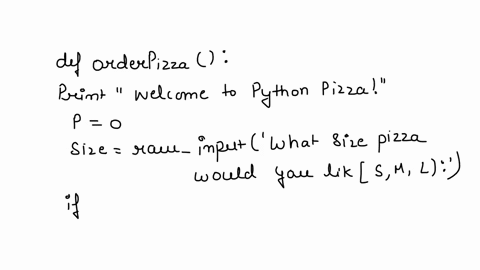 def orderPizza():
Print "Welcome to Python Pizza!"
P = 0
Size = raw_input('What Size pizza
would you lik[S,M,L):')
if